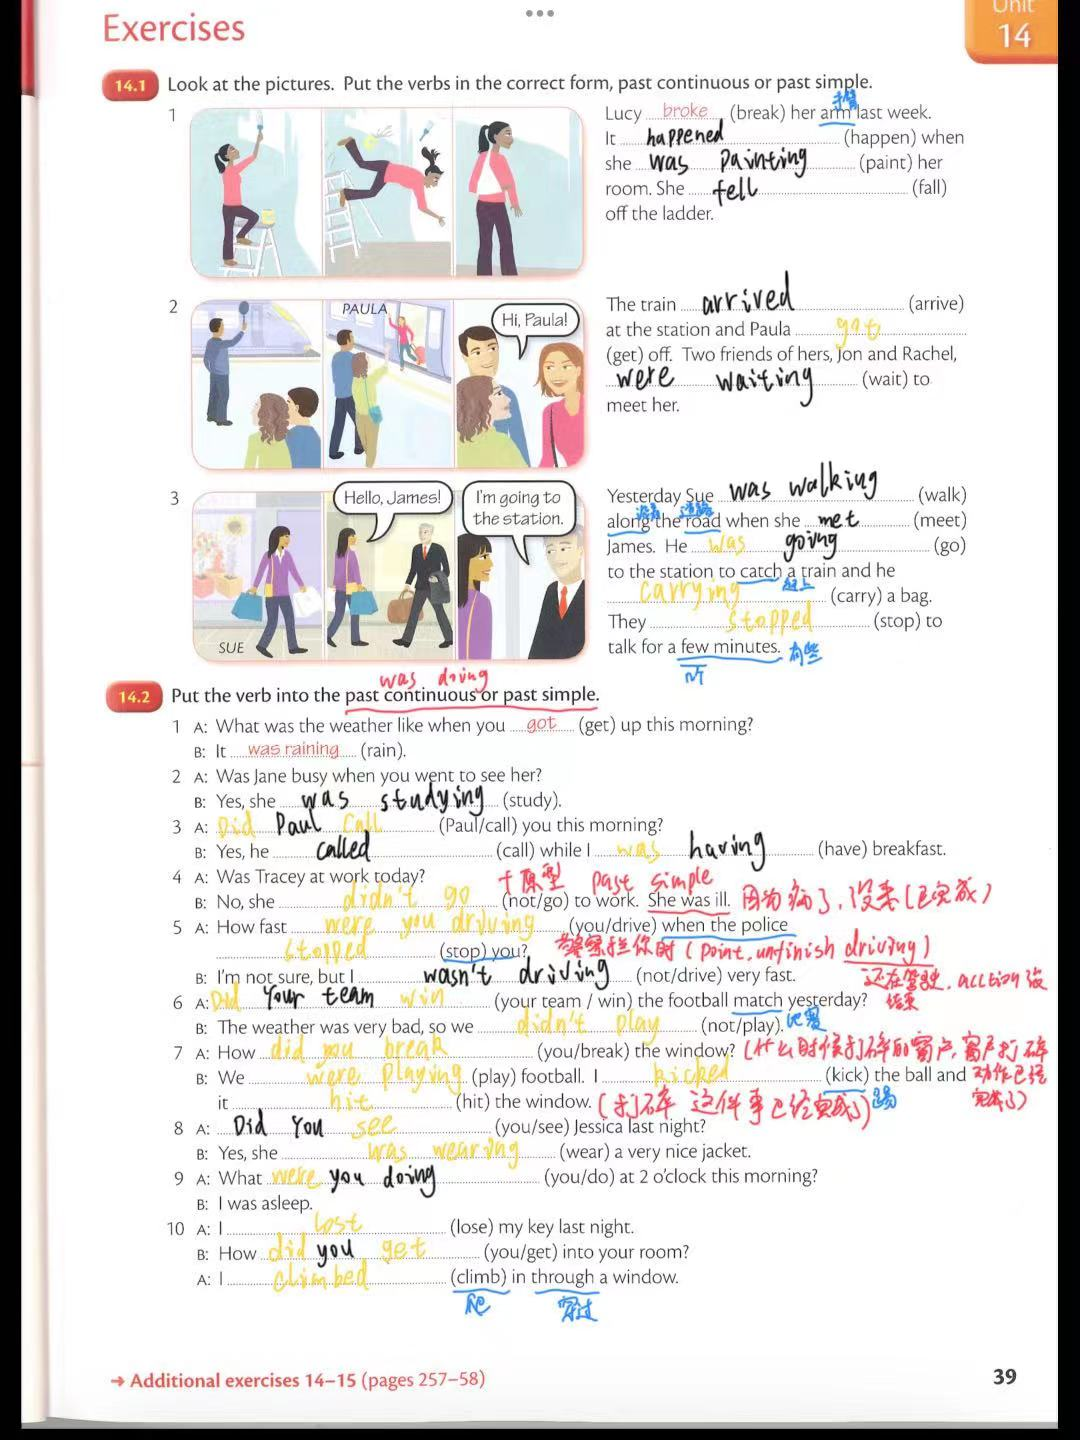 Exercises
Unit
14
14.1 Look at the pictures. Put the verbs in the correct form, past continuous or past simple.
1
Lucy broke (break) her arm last week.
It happened (happen) when
she was painting (paint) her
room. She fell (fall)
off the ladder.
2
PAULA
Hi, Paula!
The train arrived (arrive)
at the station and Paula got
(get) off. Two friends of hers, Jon and Rachel,
were waiting (wait) to
meet her.
3
Hello, James!
I'm going to
the station.
SUE
Yesterday Sue was walking (walk)
沿着 道路
along the road when she met (meet)
James. He was going (go)
to the station to catch a train and he
赶上
carrying (carry) a bag.
They stopped (stop) to
talk for a few minutes. 有些
was doing
14.2 Put the verb into the past continuous or past simple.
1 A: What was the weather like when you got (get) up this morning?
B: It was raining (rain).
2 A: Was Jane busy when you went to see her?
B: Yes, she was studying (study).
3 A: Did Paul call (Paul/call) you this morning?
B: Yes, he called (call) while I was having (have) breakfast.
4 A: Was Tracey at work today? 十原型 past simple
B: No, she didn't go (not/go) to work. She was ill. 因为病了,没来(已完成)
5 A: How fast were you driving (you/drive) when the police
stopped (stop) you? 警察拦你时(point, unfinish driving)
B: I'm not sure, but I wasn't driving (not/drive) very fast. 还在驾驶, acction没
结束
6 A: Did Your team win (your team / win) the football match yesterday?
B: The weather was very bad, so we didn't play (not/play). 比赛
7 A: How did you break (you/break) the window? (什么时候打碎的窗户,窗户打碎
B: We were playing (play) football. I kicked (kick) the ball and 动作已经
完成了)
it hit (hit) the window. (打碎 这件事已经完成了) 踢
8 A: Did You see (you/see) Jessica last night?
B: Yes, she was wearing (wear) a very nice jacket.
9 A: What were you doing (you/do) at 2 o'clock this morning?
B: I was asleep.
10 A: I lost (lose) my key last night.
B: How did you get (you/get) into your room?
A: I climbed (climb) in through a window.
爬 穿过
→ Additional exercises 14–15 (pages 257–58)
39